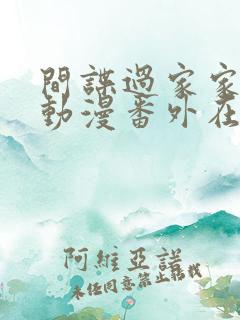 間諜過家家
動漫番外在
阿維亞諾
未經同意禁止轉載